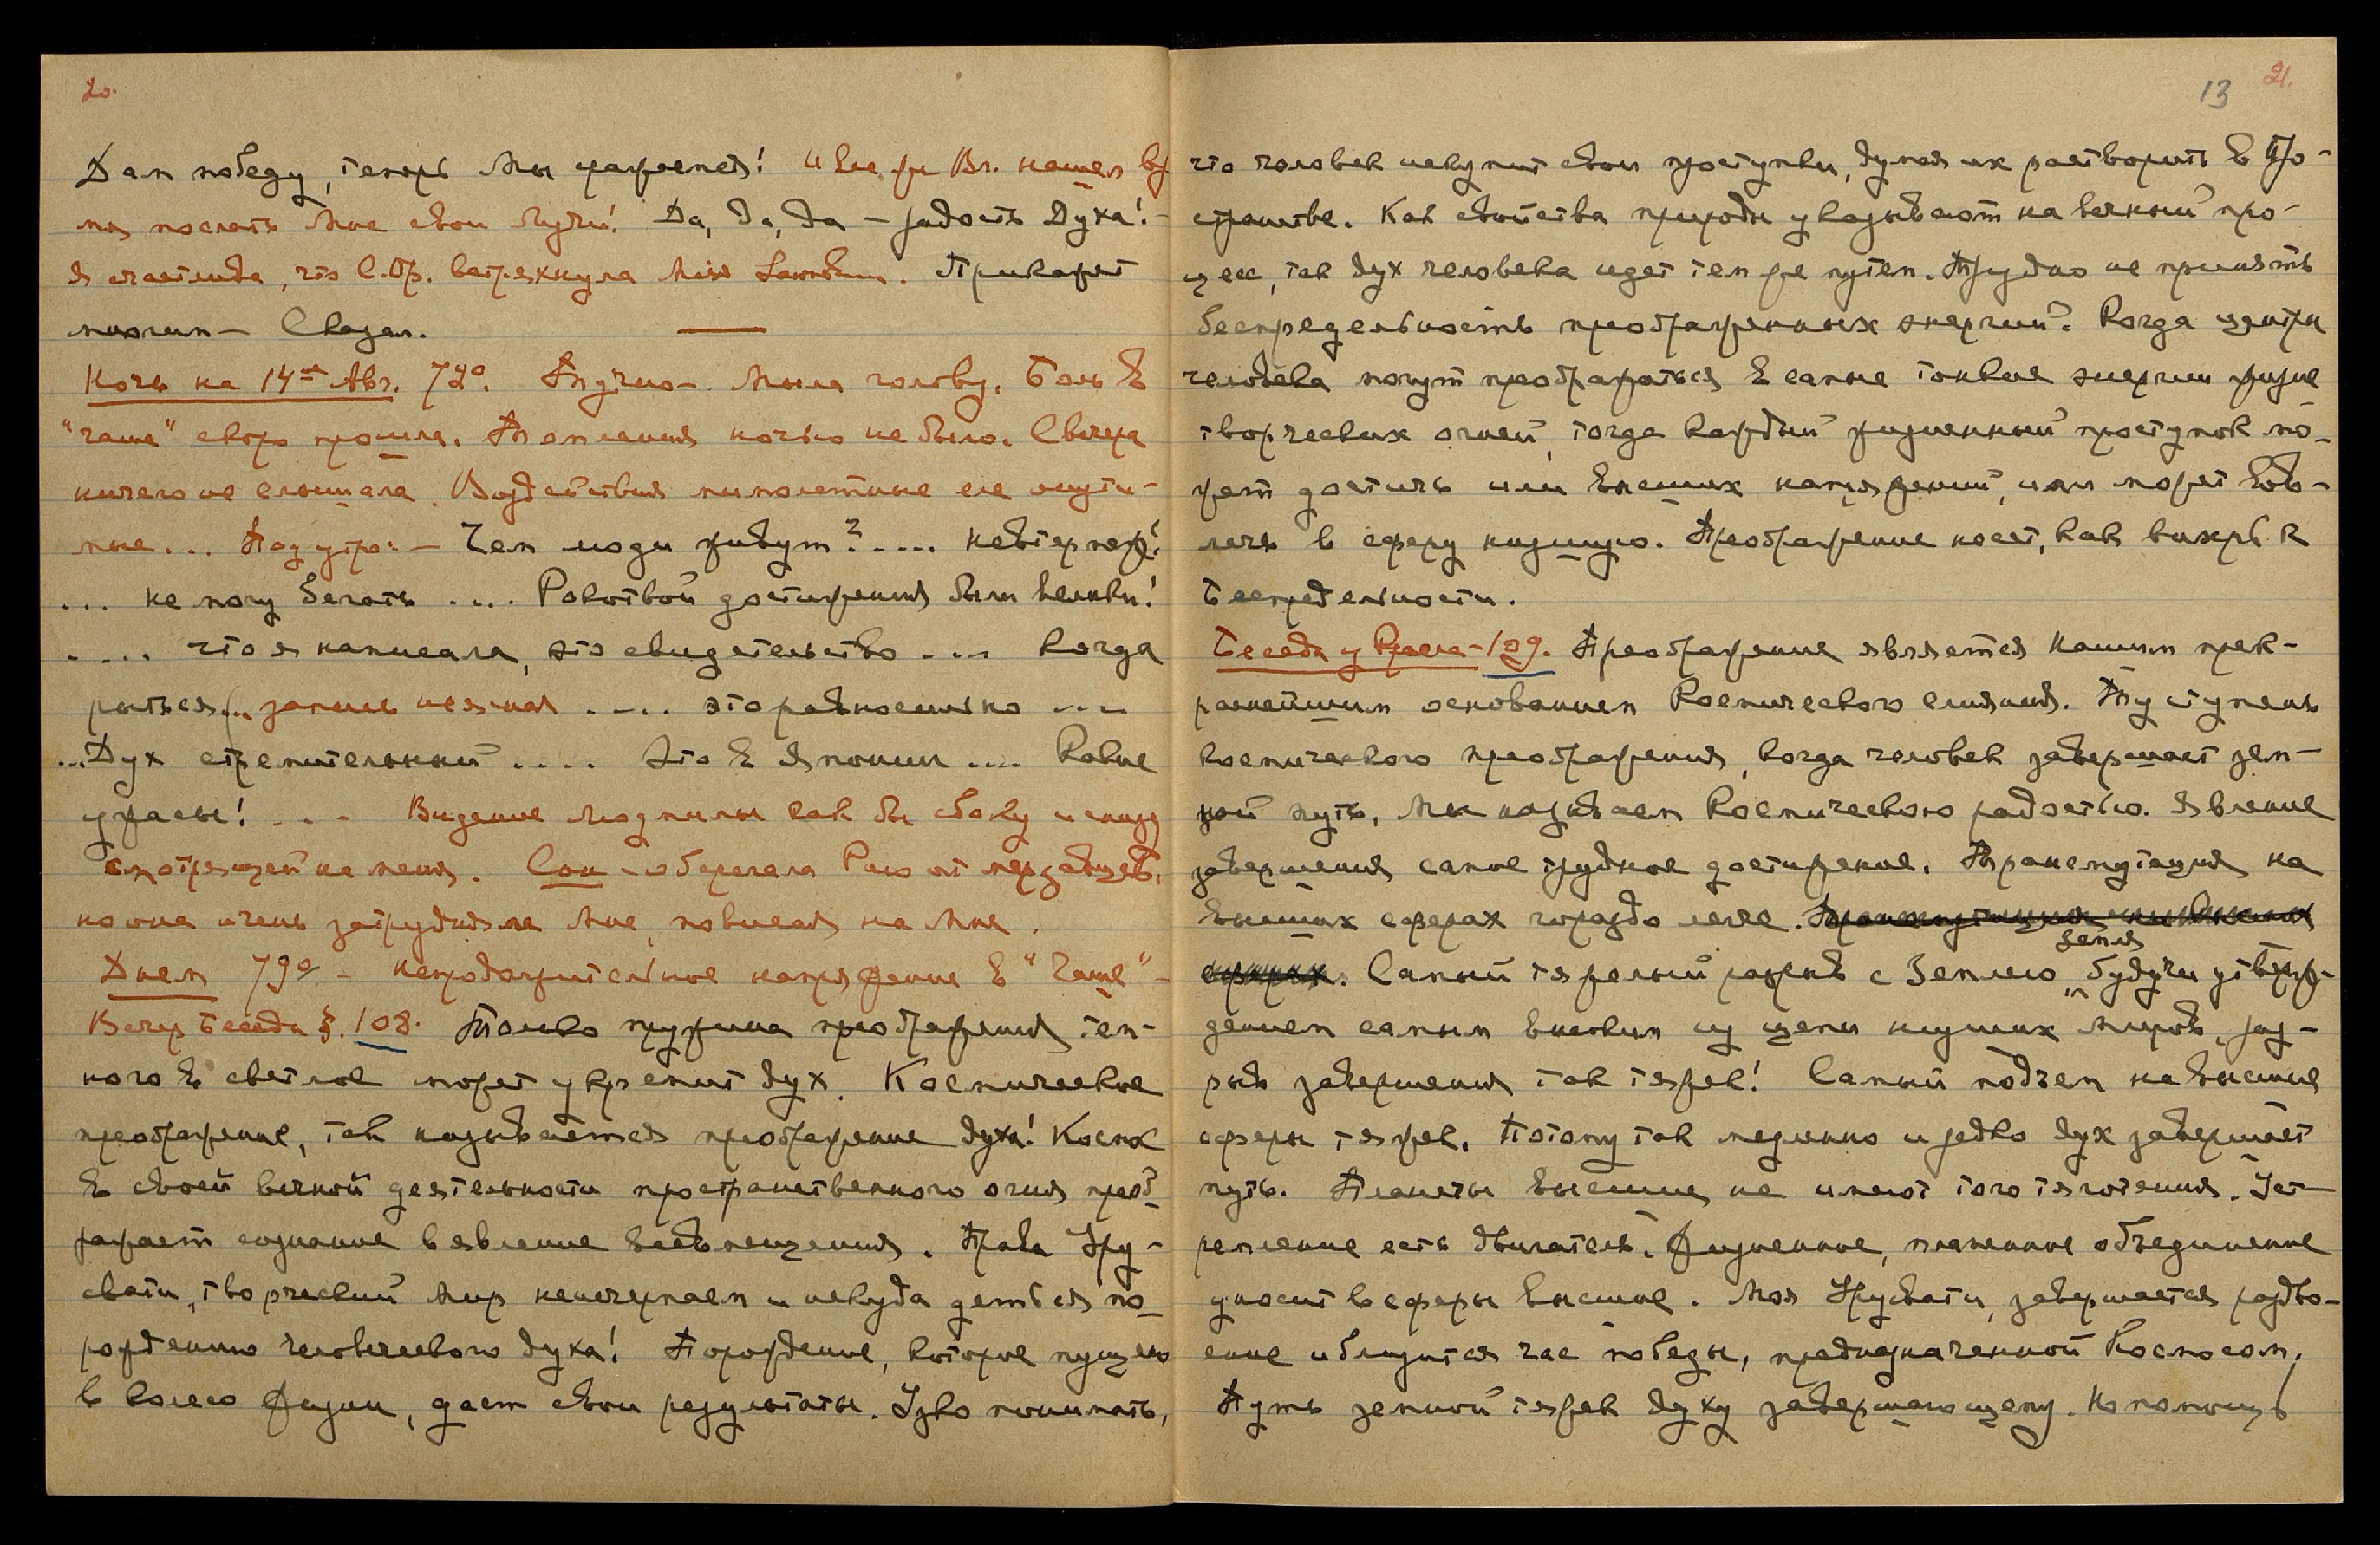 20.
Дам победу, теперь мы сражаемся! И все же Вл. нашел вре
мя послать мне свои Лучи! Да, да, да — радость Духа! —
Я счастлива, что С.Фр. встряхнула Miss. Прикажет
многим — Сказал.
Ночь на 14ое Авг. 72°. Тучно — Мыла голову. Боль в
"чаше" скоро прошла. Томления ночью не было. С вечера
ничего не слышала. Воздействия мимолетные еле ощути-
мые... Под утро: — Чем люди живут?..... Невтерпеж!
... не могу бегать .... Рокотвой достижения были велики!
.... что я написала, это свидетельство .... Когда
рыться (... запись неясная .... это равносильно ....
... Дух стремительный .... Это в Японии .... Какие
ужасы! ... Видение Людмилы как бы сбоку и снизу
смотрящей на меня. Сон — оберегала Раю от мерзавцев,
но она очень затрудняла мне, повисая на мне.
Днем 79° — Непродолжительное напряжение в "Чаше" —
Вечер Беседа §. 108. Только пружина преображения тем-
ного в светлое может укрепит дух. Космическое
преображение, так называется преображение духа! Космос
в своей вечной деятельности пространственного огня преоб-
ражает сознание в явление всевмещения. Права Уру-
свати, творческий мир неисчерпаем и некуда деться по-
рождению человеческого духа! Порождение, которое пущено
в колесо жизни, дает свои результаты. Узко понимать,
13 21.
что человек искупит свои проступки, думая их растворить в Про-
странстве. Как свойства природы указывают на вечный про-
цесс, так дух человека идет тем же путем. Трудно не принять
беспредельность преображенных энергий. Когда центры
человека могут преобразиться в самые тонкие энергии
творческих огней, тогда каждый жизненный проступок мо-
жет достичь или высших напряжений, или может вов-
лечь в сферу низшую. Преображение несет, как вихрь к
Беспредельности.
Беседа у Кресла — 109. Преображение является Нашим прек-
раснейшим основанием Космического слияния. Ту ступень
космического преображения, когда человек завершает зем-
ной путь, Мы называем Космическою радостью. Явление
завершения самое трудное достижение. Трансмутация на
высших сферах гораздо легче. Трансмутация на высших
сферах. Самый тяжелый разрыв с Землею,
земля
будучи утверж-
дением самым высоким из цепи низших миров, раз-
рыв завершения так тяжек! Самый подъем на высшие
сферы тяжек. Потому так медленно и редко дух завершает
путь. Планеты высшие не имеют того тяготения. Уст-
ремление есть двигатель. Жизненное, пламенное объединение
уносит в сферы высшие. Моя Урусвати, завершается раздво-
ение и близится час победы, предназначенной Космосом.
Путь земной тяжек духу завершающему. Но помощь